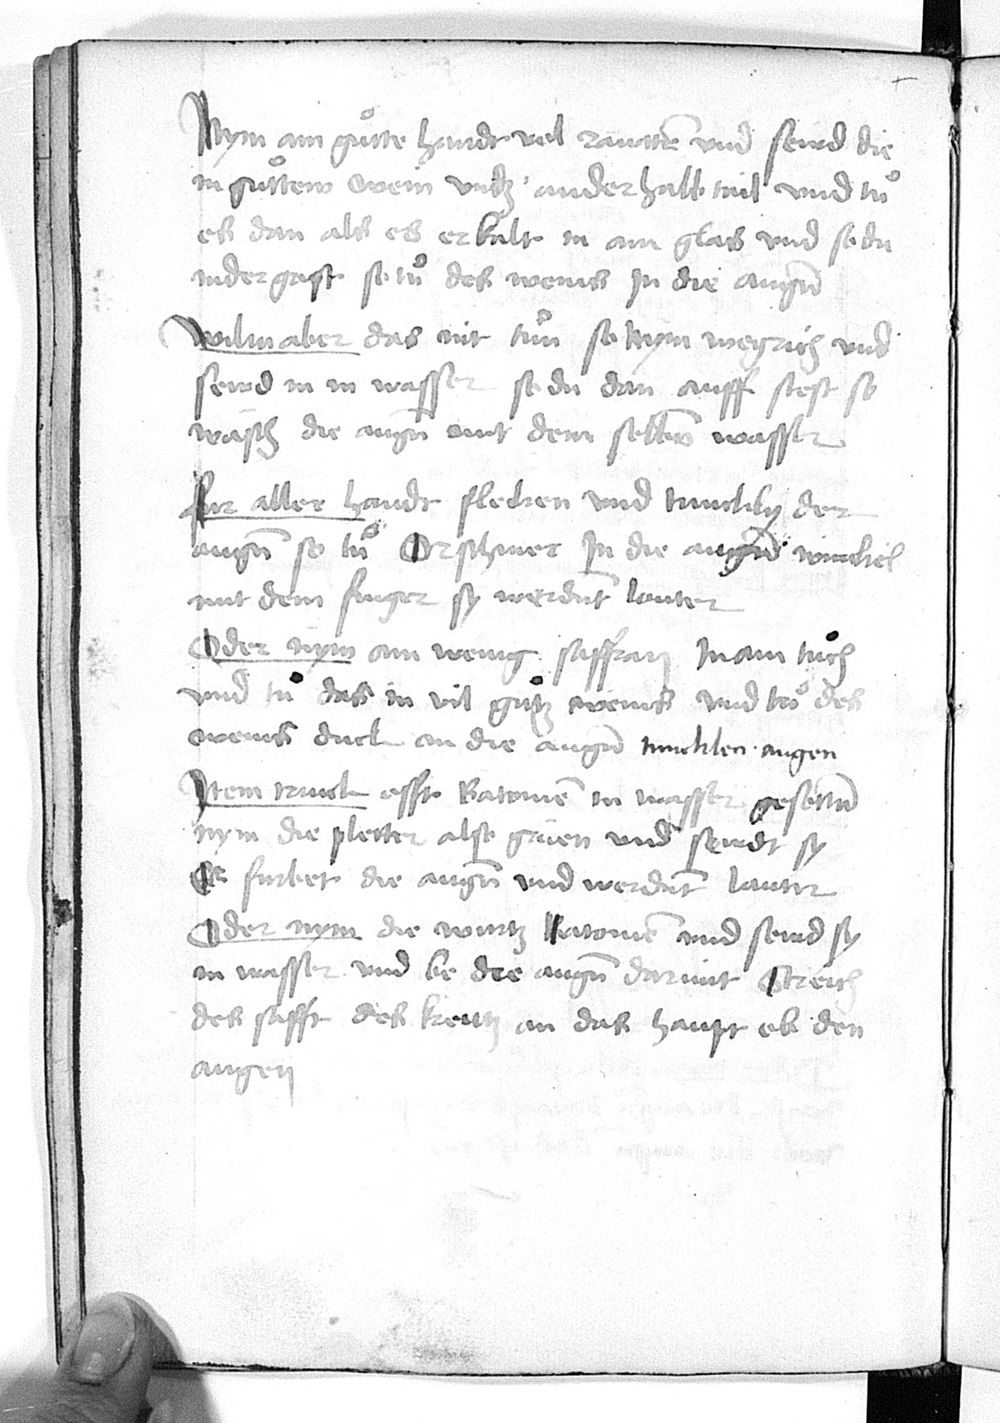 Nym ain guͦtte handt vol rautten̄ vnd seud die
in guͦttem wein vntz anderhalb tail vnd tuͦ
es dan als es erkalt in ain glas vnd so du
nider gast so tuͦ des weins In die augn̄
Wilm aber das nit tuͦn so Nym wegrich vnd
seud in in wasser so du dan auff stest so
wasch die augn̄ mit dem selbn̄ wasser
fur aller handt flecken vnd tunckly der
augn̄ so tuͦ Orschmer In die augn̄ winckel
mit dem finger sy werdn̄t lauter
Oder nym ain wenig saffran In ain tuͦch
vnd tuͦ das in vil guͦtz weins vnd tuͦ des
weins dick an die augn̄ tuncklen augen
Item trinck offt Batonien̄ in wasser gesottn̄
nym die pletter also grien vnd seudt sy
Es furbet die augn̄ vnd werdn̄t lauter
Oder nym die wurtz Batonien̄ vnd seud sy
in wasser vnd be die augn̄ darmit Streich
des safft des kreutz an das haupt ob den
augen